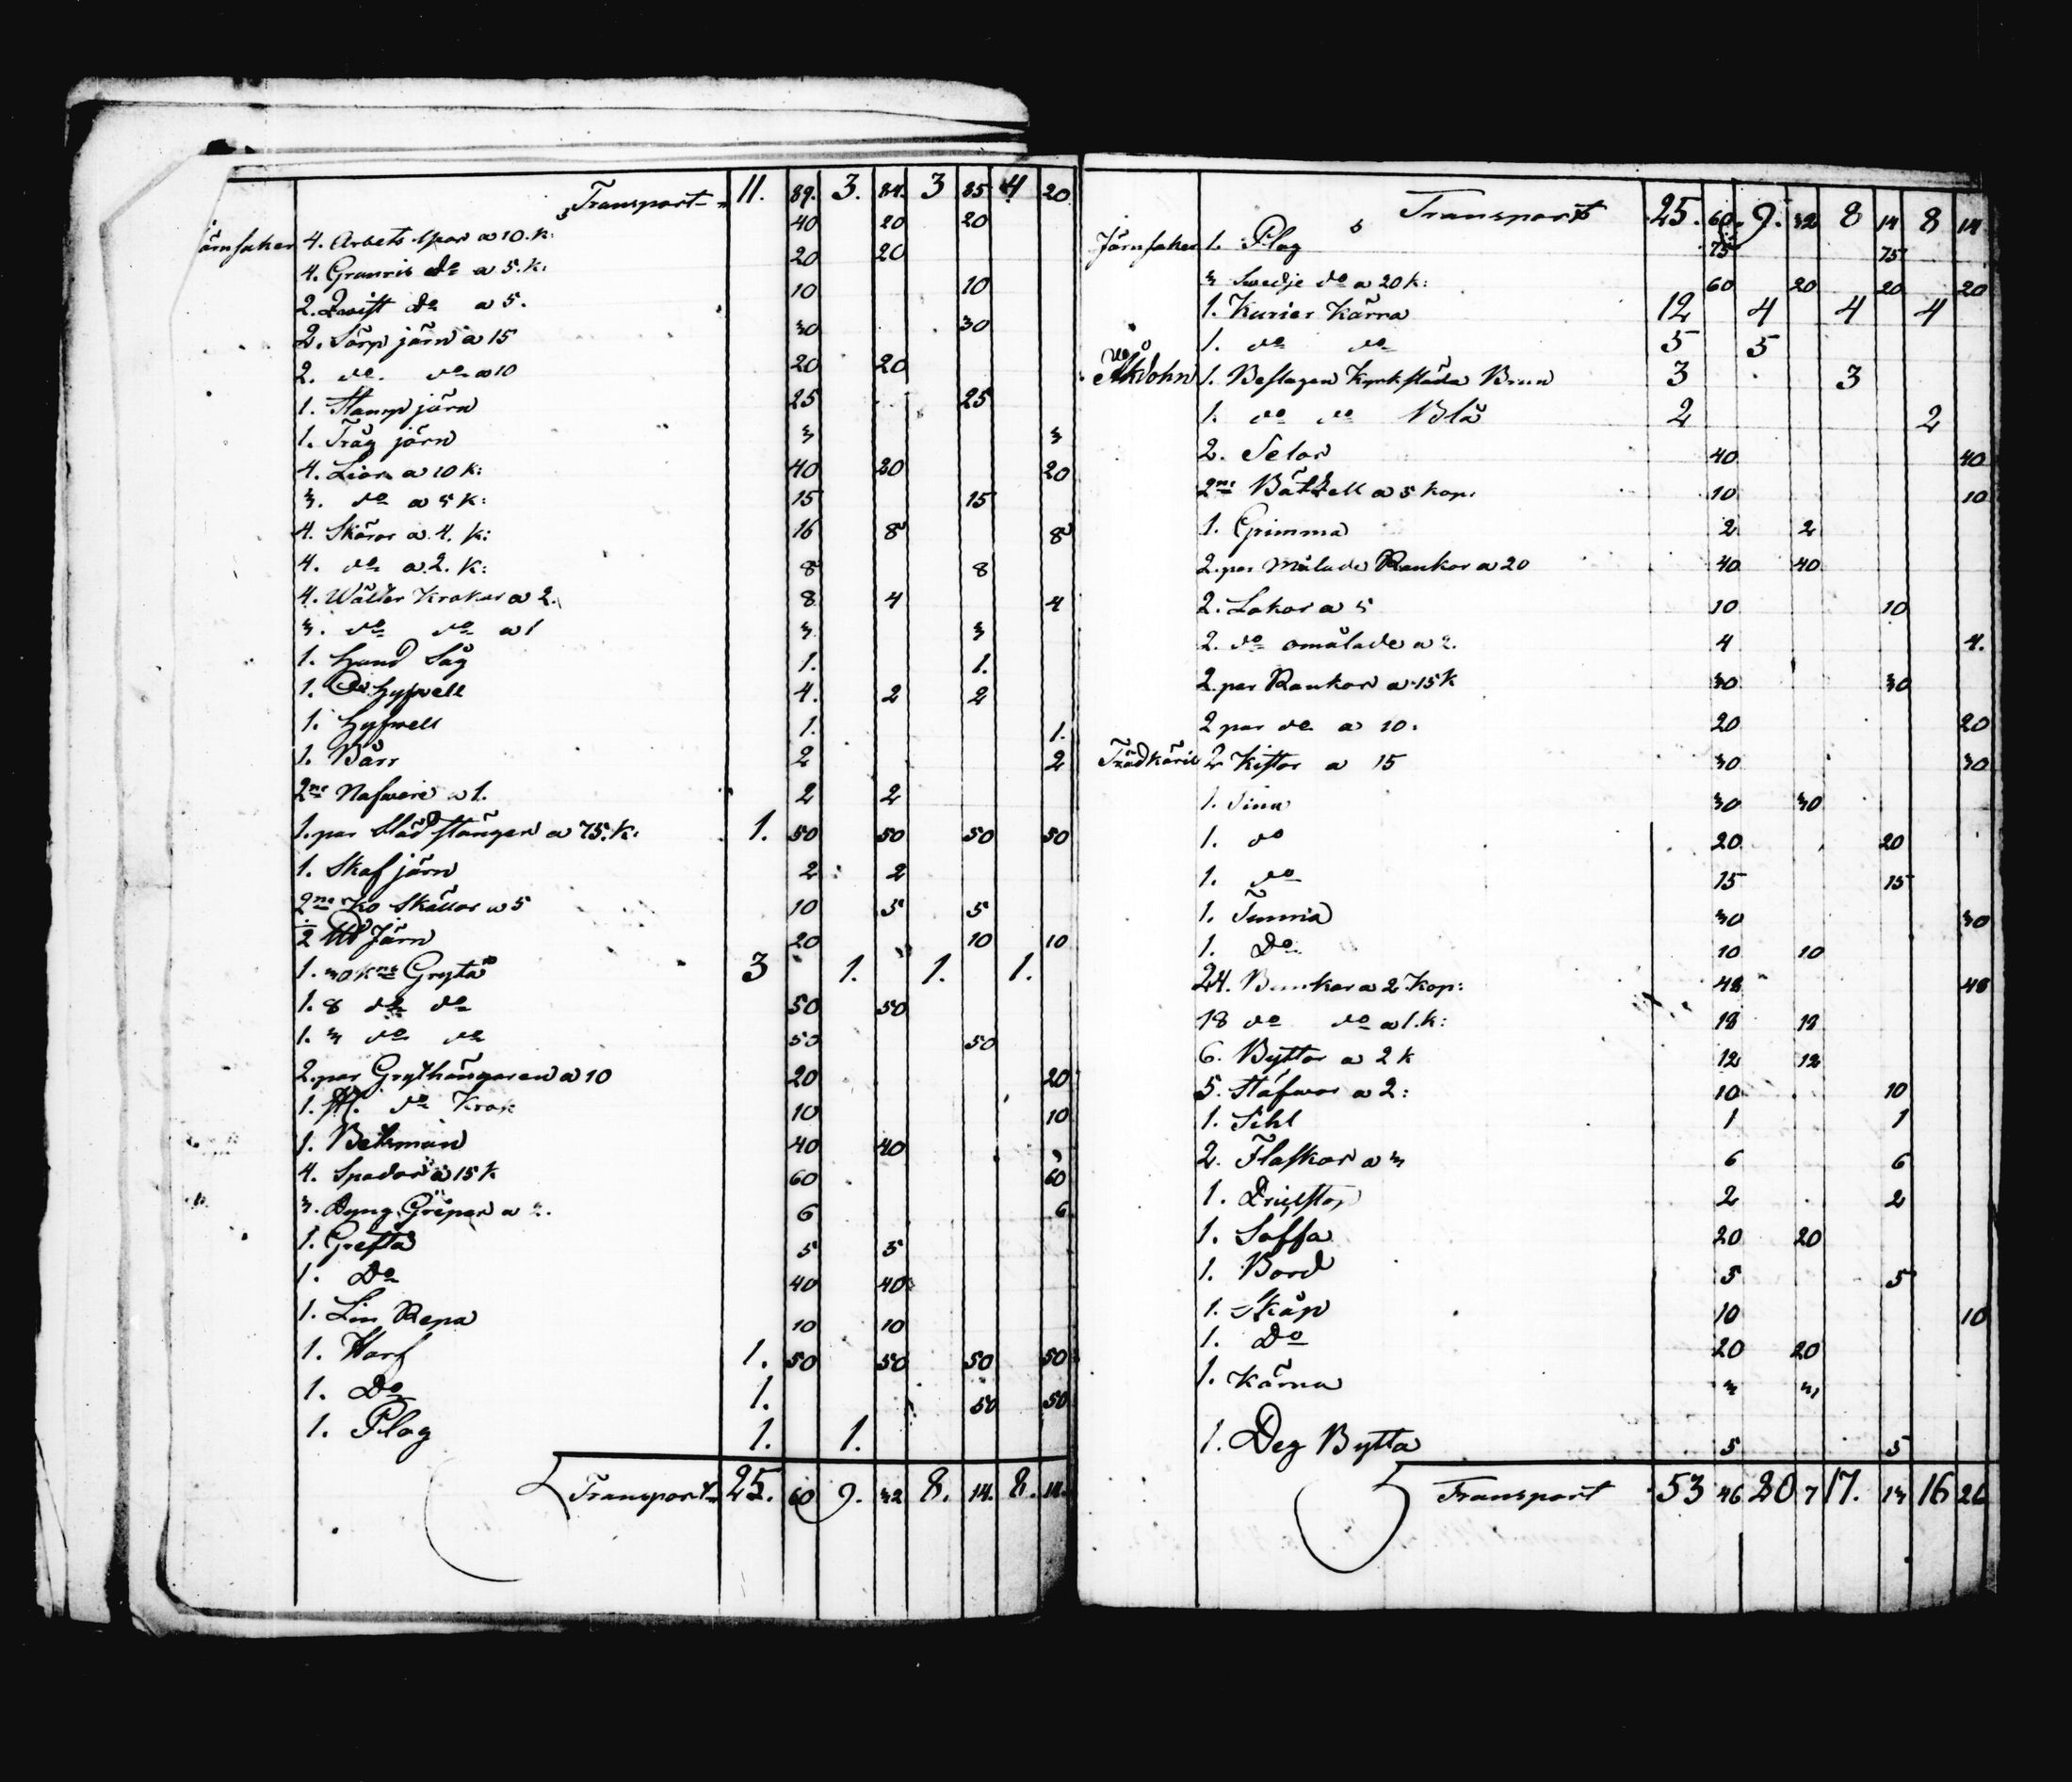 Transport 11. 89. 3. 84. 3 85 4 20
Järnsaker 4. Arbets Spar a 10. k: 40 20 20
4. Granris do a 5. k: 20 20
2. Qwist do a 5. 10 10
2. Sörp järn a 15 30 30
2. do. do a 10 20 20
1. Stamp järn 25 25
1. Tråg järn 3 3
4. Liar a 10 k: 40 20 20
3. do a 5 k: 15 15
4. Skäror a 4. k: 16 8 8
4. do a 2. k: 8 8
4. Wälter Krokar a 2. 8 4 4
3. do do a 1 3 3
1. Hand Såg 1. 1.
1. Do Hyfwell 4. 2 2
1. Hyfwell 1. 1.
1. Bårr 2 2
2ne Nafware a 1. 2 2
1. par Städ stånger a 75. k: 1. 50 50 50 50
1. Skaf järn 2 2
2ne Ko Skällor a 5 10 5 5
2 Järn 20 10 10
1. 30 kns Gryta 3 1. 1. 1.
1. 8 do do 50 50
1. 3 do do 50 50
2. par Grythängaren a 10 20 20
1. do Krok 10 10
1. Betsman 40 40
4. Spador a 15 k 60 60
3. Dyng Grepar a 2. 6 6
1. Grefta 5 5
1. Do 40 40
1. Lin Repa 10 10
1. Harf 1. 50 50 50 50
1. Do 1. 50 50
1. Plog 1. 1.
Transport 25. 60 9. 32 8. 14. 8. 14.
Transport 25. 60. 9. 32 8 14 8 14
Järnsaker 1. Plog 75 75
3 Swedje do a 20 k: 60 20 20 20
1. Kurier Kärra 12 4 4 4
1. do do 5 5
Åkdohn 1. Beslagen Kyrksläda Brun 3 3
1. do do Blå 2 2
2. Selar 40 40
2ne a 5 kop: 10 10
1. Grimma 2 2
2. par Målade Rankor a 20 40 40
2. Lokor a 5 10 10
2. do omålade a 2. 4 4.
2. par Rankor a 15 K 30 30
2 par do a 10. 20 20
Trädkäril 2 Kistor a 15 30 30
1. Tina 30 30
1. do 20 20
1. do 15 15
1. Tunna 30 30
1. Do 10 10
24. Bunkar a 2 Kop: 48 48
18 do do a 1. k: 18 18
6. Byttor a 2 k 12 12
5. Stäfwor a 2: 10 10
1. Sihl 1 1
2. Flaskor a 3 6 6
1. 2 2
1. Soffa 20 20
1. Bord 5 5
1. Skåp 10 10
1. Do 20 20
1. Kärna 3 3
1. Deg Bytta 5 5
Transport 53 46 20 7 17. 13 16 26